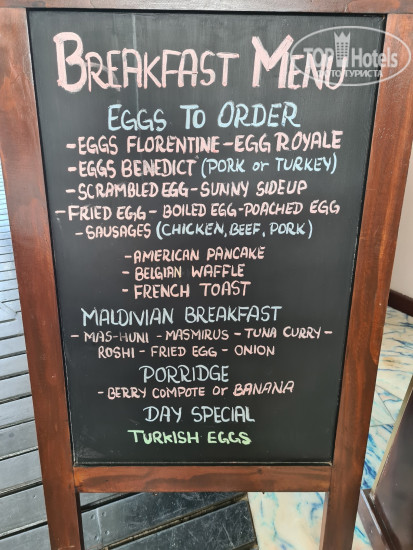 BREAKFAST MENU
TOPHotels
ФОТО ТУРИСТА
EGGS TO ORDER
-EGGS FLORENTINE -EGG ROYALE
-EGGS BENEDICT (PORK or TURKEY)
-SCRAMBLED EGG - SUNNY SIDE UP
-FRIED EGG - BOILED EGG -POACHED EGG
- SAUSAGES (CHICKEN, BEEF, PORK)
-AMERICAN PANCAKE
- BELGIAN WAFFLE
- FRENCH TOAST
MALDIVIAN BREAKFAST
- MAS-HUNI - MASMIRUS - TUNA CURRY-
ROSHI - FRIED EGG - ONION
PORRIDGE
- BERRY COMPOTE or BANANA
DAY SPECIAL
TURKISH EGGS